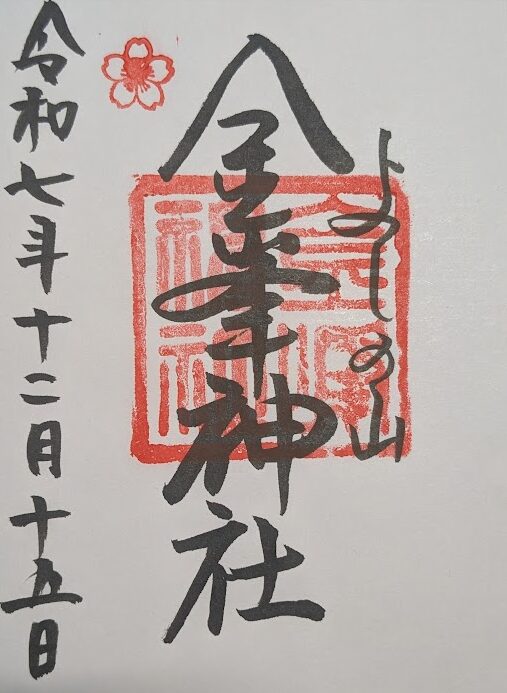 よしの山
金峯神社
令和七年十二月十五日